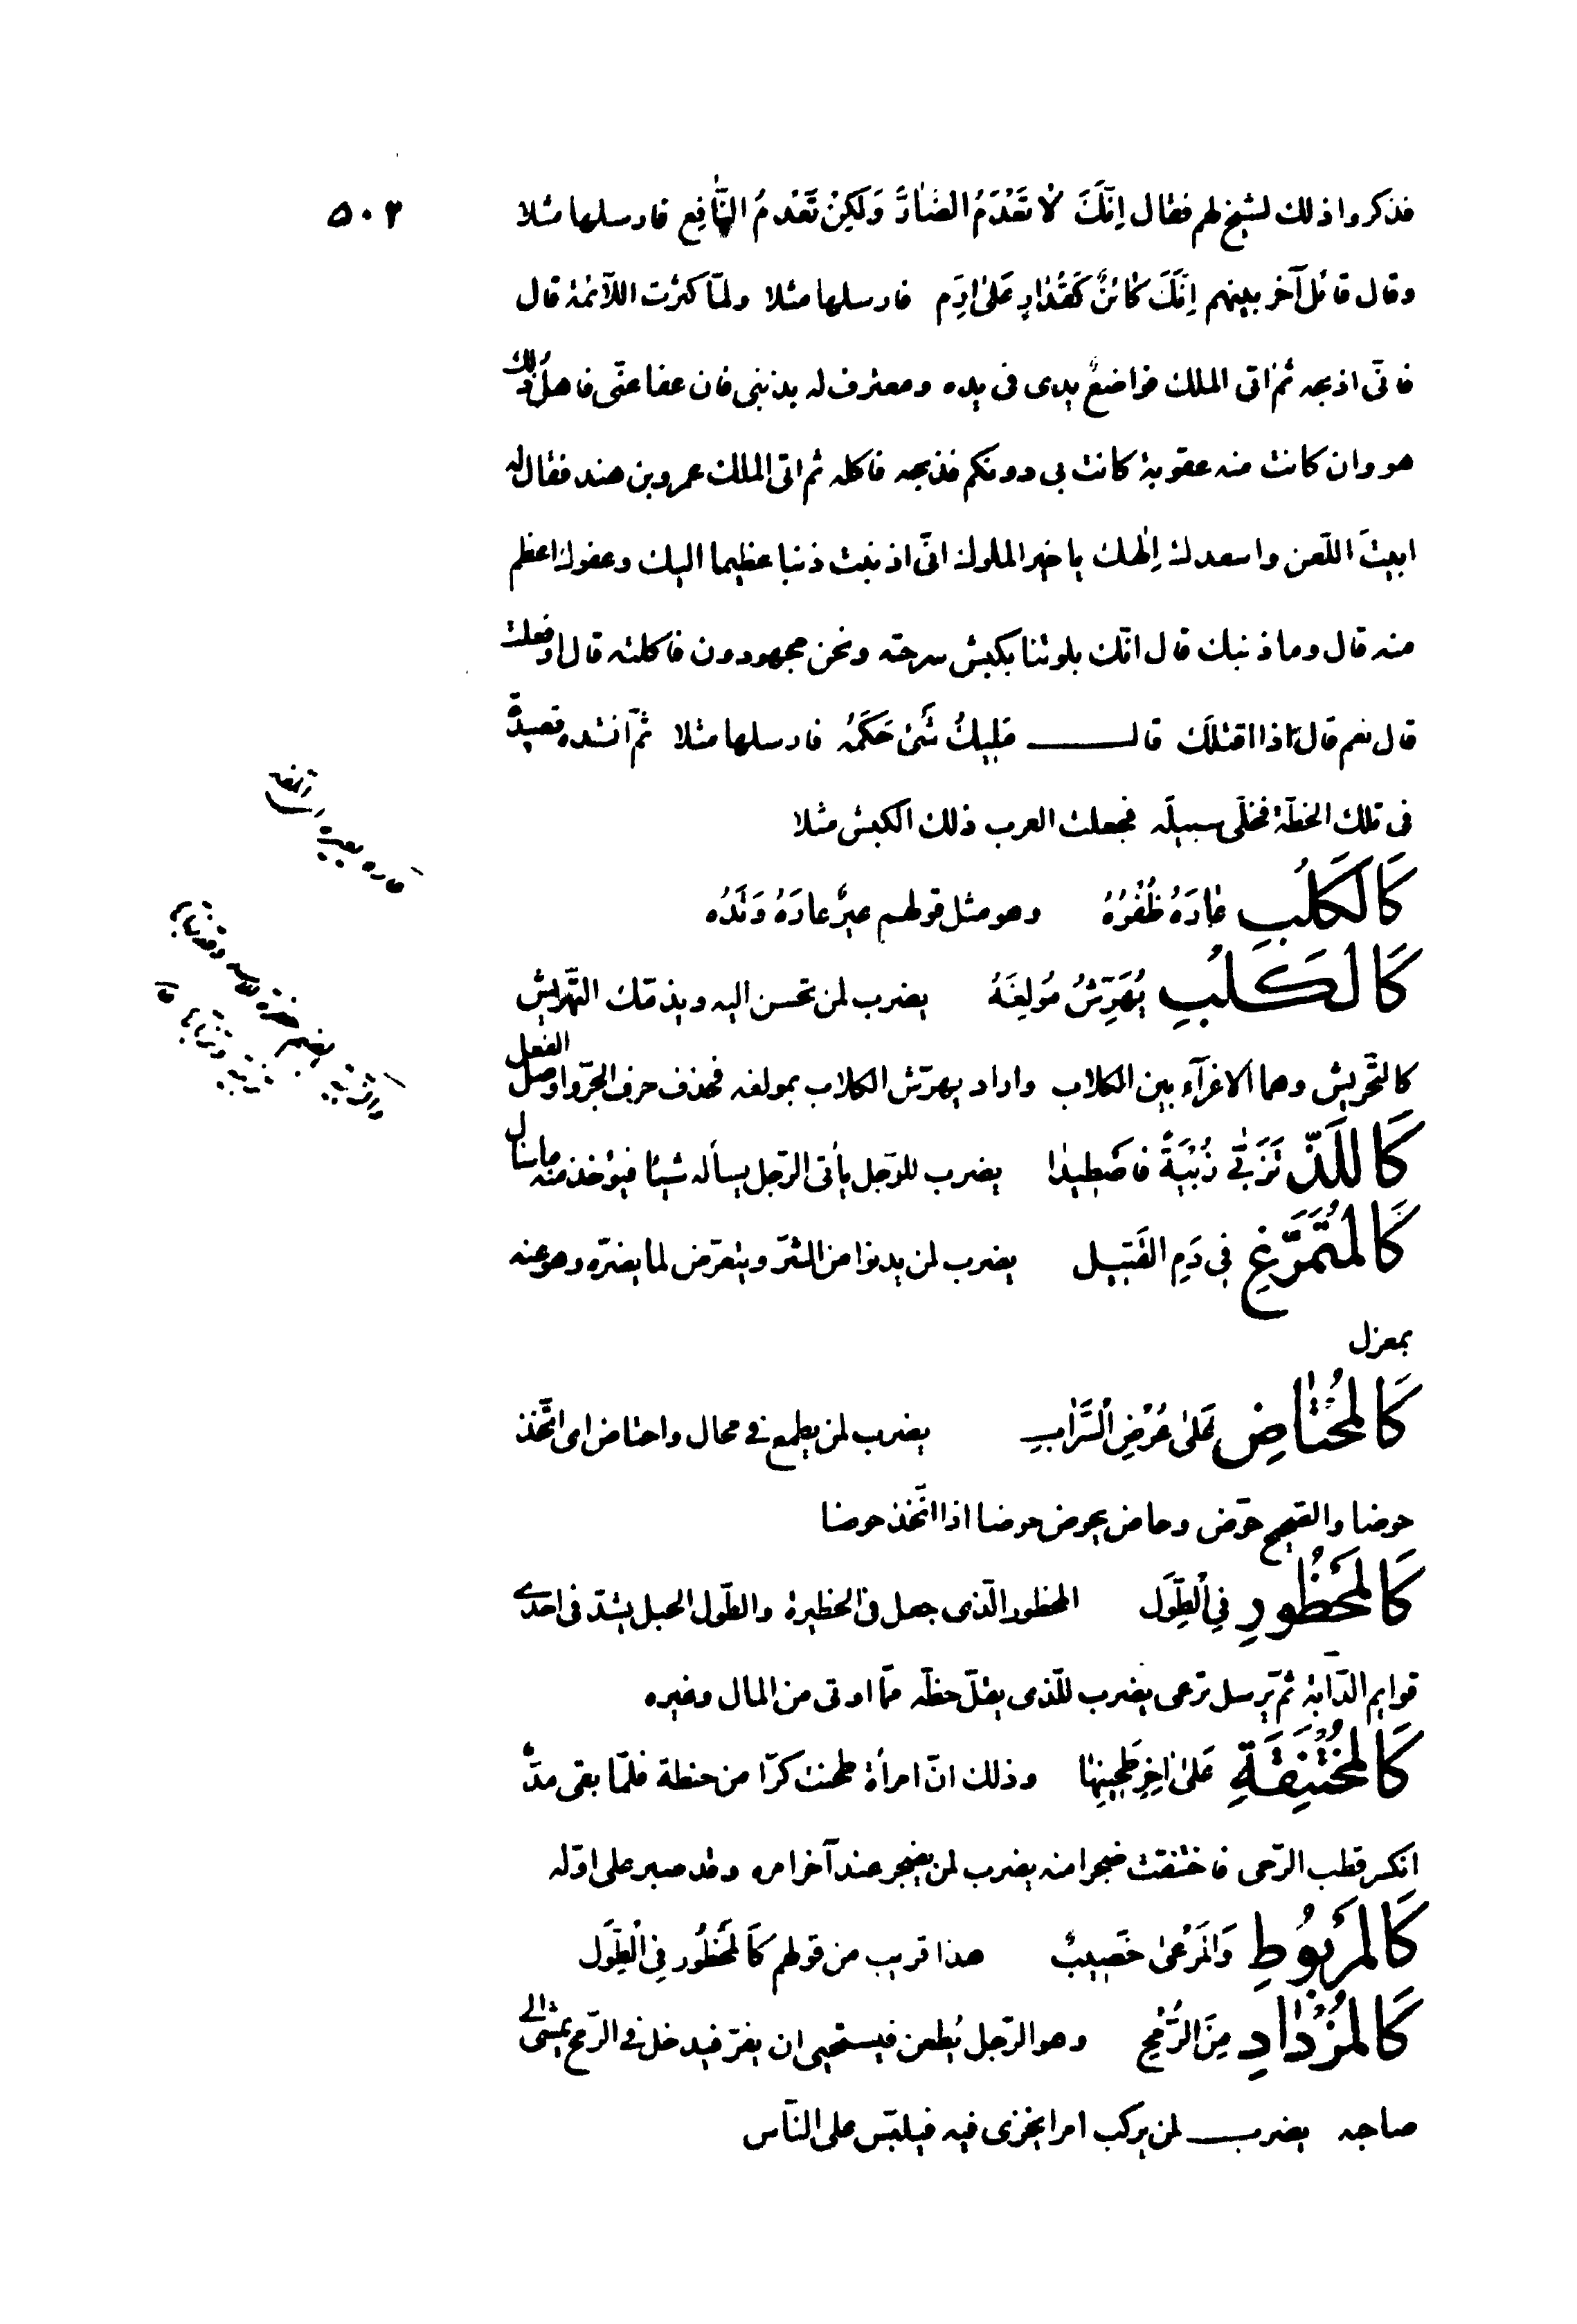 ٥٠٢
فذكروا ذلك لشيخ لهم فقال اِنَّكَ لاٰ تَعْدَمُ الضّٰارَّ وَلٰكِنْ تَعْدَمُ النّٰافِع فارسلها مثلا
وقال قائل آخر بينهم اِنَّكَ كٰائنٌ كَقُدٰارٍ عَلىٰ اِرَمِ فارسلها مثلا ولمّا كثرت اللّائمة قال
فانّى اذبحه ثم اتى الملك فواضعٌ يدى فى يده ومعترف له بذنبى فان عفا عنّى فاهلُ ذلك
هو وان كانت منه عقوبة كانت بى دونكم فذبحه فاكله ثم اتى الملك عمرو بن هند فقال له
ابيتَ اللّعن واسعدك اِلٰهك يا خير الملوك انّى اذنبت ذنبا عظيما اليك وعفوك اعظم
منه قال وما ذنبك قال انّك بلوتنا بكبش سرحته ونحن مجهودون فاكلته قال اوفعلت
قال نعم قال اذا اقتلك قال مَلِيكُ شَىْءٍ حَكَمُهُ فارسلها مثلا ثمّ انشده قصيدة
فى تلك الخطّة فخلّى سبيلَه فجعلت العرب ذلك الكبش مثلا
كَالْكَلْبِ عٰارَهُ ظُفْرُهُ وهو مثل قولهم عيرٌ عارَهُ وَتَدُه
كَالْكَلْبِ يُهَرِّشُ مُولِغَهُ يضرب لمن تحسن اليه ويذمّك التّهريش
كالتّحريش وهما الاغراء بين الكلاب واراد يهرّش الكلاب بمولغه فحذف حرف الجرّ واوصل الفعل
كَاللَّذْ تَزَبّٰى زُبْيَةً فَاصْطِيدٰا يضرب للرّجل يأتى الرّجل يسأله شيئا فيؤخذ منه ما سال
كَالْمُتَمَرِّغِ فِى دَمِ القَتِيل يضرب لمن يدنوا من الشّرّ ويتعرّض لما يضرّه وهو عنه
بمعزل
كَالْمُحْتٰاضِ عَلىٰ عُرْضِ السَّرٰابِ يضرب لمن يطمع فى محال واحتاض اى اتّخذ
حوضا والصّحيح حوّض وحاض يحوض حوضا اذا اتّخذ حوضا
كَالْمَحْظُورِ فِى الطِّوَل المحظور الّذى جعل فى الحظيرة والطّول الحبل يشدّ فى احدى
قوايم الدّابة ثم يرسل ترعى يضرب للّذى يقلّ حظّه ممّا اوتى من المال وغيره
كَالْمُخْتَنِقَةِ عَلىٰ اٰخِرِ طَحِينِهٰا وذلك انّ امرأة طحنت كرّا من حنطة فلمّا بقى مدّ
انكسر قطب الرّحى فاختنقت ضجرا منه يضرب لمن يضجر عند آخر امره وقد صبر على اوّله
كَالْمَرْبُوطِ وَالْمَرْعىٰ خَصِيبٌ هذا قريب من قولهم كَالْمَحْظُور فِى الْطِّوَل
كَالْمُزْدٰادِ مِنَ الرُّمْحِ وهو الرّجل يُطعن فيستحيى ان يفرّ فيدخل فى الرّمح يمشى الى
صاحبه يضرب لمن يركب امرا يخزى فيه فيلبّس على النّاس